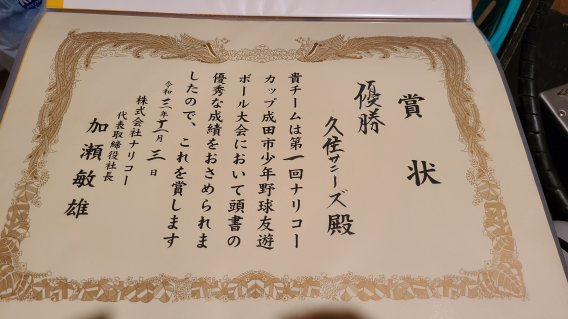 賞状
優勝
久住サニーズ殿
貴チームは第一回ナリコー
カップ成田市少年野球友遊
ボール大会において頭書の
優秀な成績をおさめられま
したので、これを賞します
令和三年十一月三日
株式会社ナリコー
代表取締役社長
加瀬敏雄